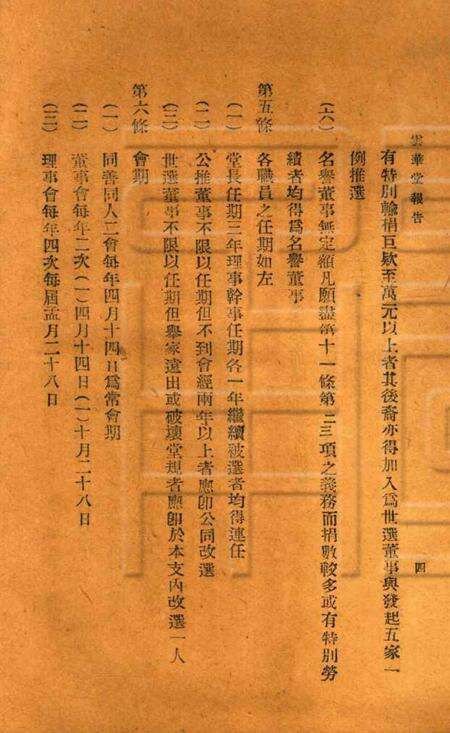 雲華堂報告
四
有特別輸捐巨欵至萬元以上者其後裔亦得加入爲世選董事與發起五家一
例推選
(六) 名譽董事無定額凡願盡第十一條第二三項之義務而捐數較多或有特別勞
績者均得爲名譽董事
第五條 各職員之任期如左
(一) 堂長任期三年理事幹事任期各一年繼續被選者均得連任
(二) 公推董事不限以任期但不到會經兩年以上者應卽公同改選
(三) 世選董事不限以任期但舉家遠出或破壞堂規者應卽於本支內改選一人
第六條 會期
(一) 同善同人二會每年四月十四日爲常會期
(二) 董事會每年二次(一)四月十四日(一)十月二十八日
(三) 理事會每年四次每屆孟月二十八日